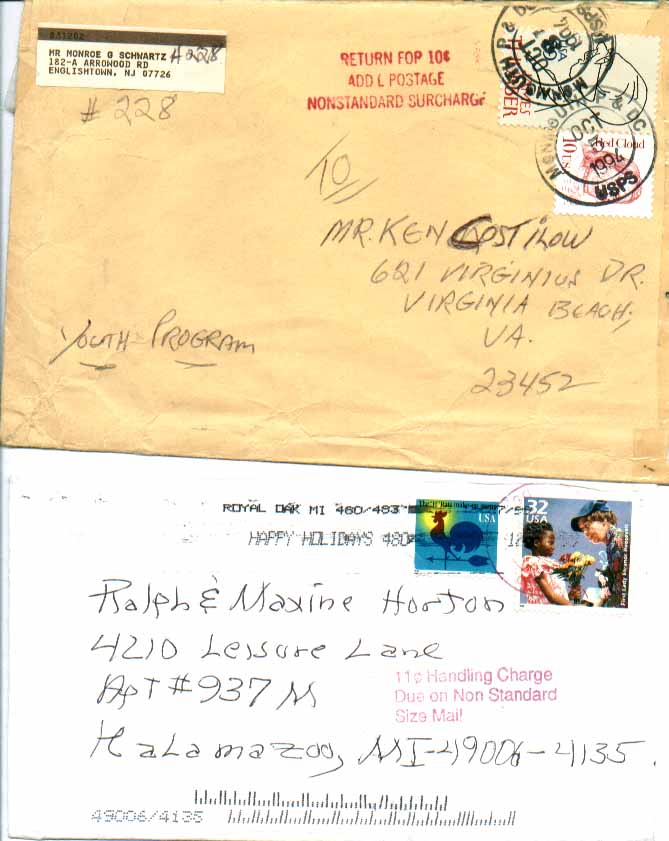 031202
MR MONROE G SCHWARTZ A228
182-A ARROWOOD RD
ENGLISHTOWN, NJ 07726
# 228
RETURN FOP 10¢
ADD L POSTAGE
NONSTANDARD SURCHARGE
MONMOUTH P & DC
OCT
1994
USPS
Red Cloud
10 USA
TO
MR. KEN COSTILOW
621 VIRGINIUS DR.
VIRGINIA BEACH,
VA.
23452
YOUTH PROGRAM
ROYAL OAK MI 480/483
HAPPY HOLIDAYS 480
USA
32
USA
First Lady Eleanor Roosevelt
Ralph & Maxine Horton
4210 Leisure Lane
Apt #937 M
Kalamazoo, MI-49006-4135.
11¢ Handling Charge
Due on Non Standard
Size Mail
49006/4135